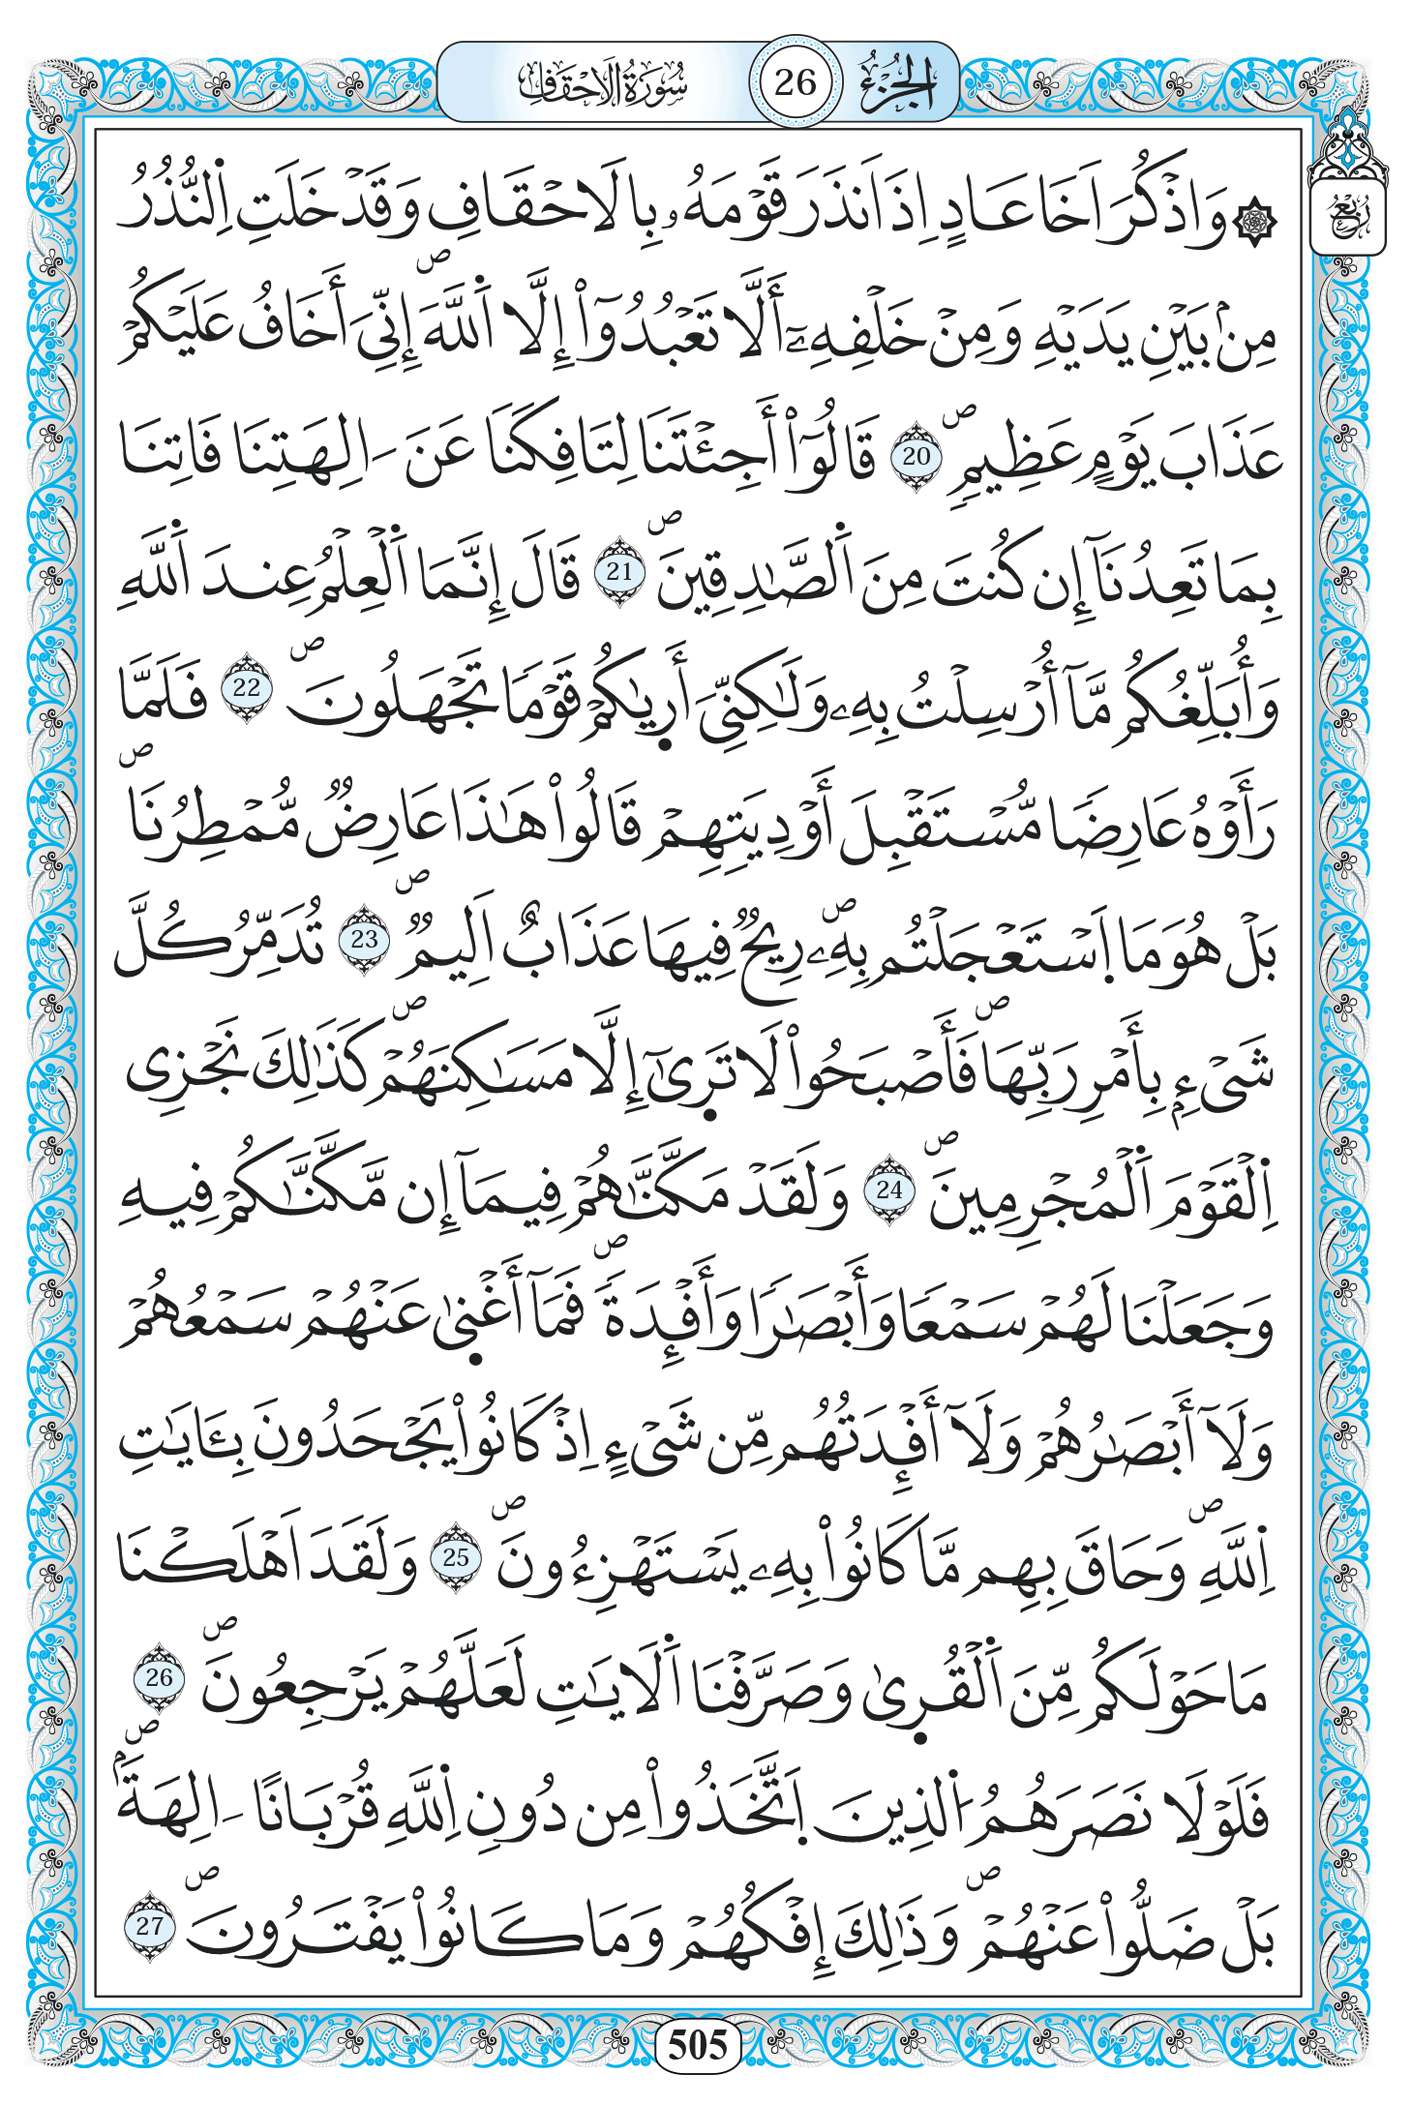 الجزء 26 سورة الاحقاف
ربع
۞ وَاذْكُرَ اَخَا عَادٍ اِذَ اَنذَرَ قَوْمَهُۥ بِالَاحْقَافِ وَقَدْ خَلَتِ اِ۬لنُّذُرُ
مِنۢ بَيْنِ يَدَيْهِ وَمِنْ خَلْفِهِۦٓ أَلَّا تَعْبُدُوٓاْ إِلَّا اَ۬للَّهَ ص إِنِّيَ أَخَافُ عَلَيْكُمْ
عَذَابَ يَوْمٍ عَظِيمٍ ص 20 قَالُوٓاْ أَجِئْتَنَا لِتَافِكَنَا عَنَ _اٰلِهَتِنَا فَاتِنَا
بِمَا تَعِدُنَآ إِن كُنتَ مِنَ اَ۬لصَّٰدِقِينَ ص 21 قَالَ إِنَّمَا اَ۬لْعِلْمُ عِندَ اَ۬للَّهِ
وَأُبَلِّغُكُم مَّآ أُرْسِلْتُ بِهِۦ وَلَٰكِنِّيَ أَر۪يٰكُمْ قَوْماٗ تَجْهَلُونَ ص 22 فَلَمَّا
رَأَوْهُ عَارِضاٗ مُّسْتَقْبِلَ أَوْدِيَتِهِمْ قَالُواْ هَٰذَا عَارِضٞ مُّمْطِرُنَا ص
بَلْ هُوَ مَا اَ۪سْتَعْجَلْتُم بِهِۦ ص رِيحٞ فِيهَا عَذَابٌ اَلِيمٞ ص 23 تُدَمِّرُ كُلَّ
شَےْءِۢ بِأَمْرِ رَبِّهَا ص فَأَصْبَحُواْ لَا تَر۪ىٰٓ إِلَّا مَسَٰكِنَهُمْ ص كَذَٰلِكَ نَجْزِے
اِ۬لْقَوْمَ اَ۬لْمُجْرِمِينَ ص 24 وَلَقَدْ مَكَّنَّٰهُمْ فِيمَآ إِن مَّكَّنَّٰكُمْ فِيهِ
وَجَعَلْنَا لَهُمْ سَمْعاٗ وَأَبْصَٰراٗ وَأَفْـِٕدَةٗ ص فَمَآ أَغْن۪يٰ عَنْهُمْ سَمْعُهُمْ
وَلَآ أَبْصَٰرُهُمْ وَلَآ أَفْـِٕدَتُهُم مِّن شَےْءٍ اِذْ كَانُواْ يَجْحَدُونَ بِـَٔايَٰتِ
اِ۬للَّهِ ص وَحَاقَ بِهِم مَّا كَانُواْ بِهِۦ يَسْتَهْزِءُونَ ص 25 وَلَقَدَ اَهْلَكْنَا
مَا حَوْلَكُم مِّنَ اَ۬لْقُر۪ىٰ وَصَرَّفْنَا اَ۬لَايَٰتِ لَعَلَّهُمْ يَرْجِعُونَ ص 26
فَلَوْلَا نَصَرَهُمُ اُ۬لذِينَ اَ۪تَّخَذُواْ مِن دُونِ اِ۬للَّهِ قُرْبَاناً _اٰلِهَةَۢ ص
بَلْ ضَلُّواْ عَنْهُمْ ص وَذَٰلِكَ إِفْكُهُمْ وَمَا كَانُواْ يَفْتَرُونَ ص 27
505